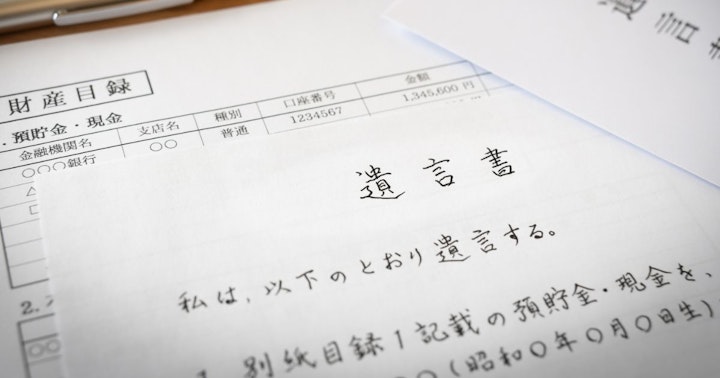 財産目録
.預貯金・現金
金融機関名 支店名 種別 口座番号 金額
○○○銀行 ○○ 普通 1234567 1,345,600 円
2.
○○
遺言書
遺言
私は、以下のとおり遺言する。
別紙目録1記載の預貯金・現金を、
(昭和○年○月○日生)